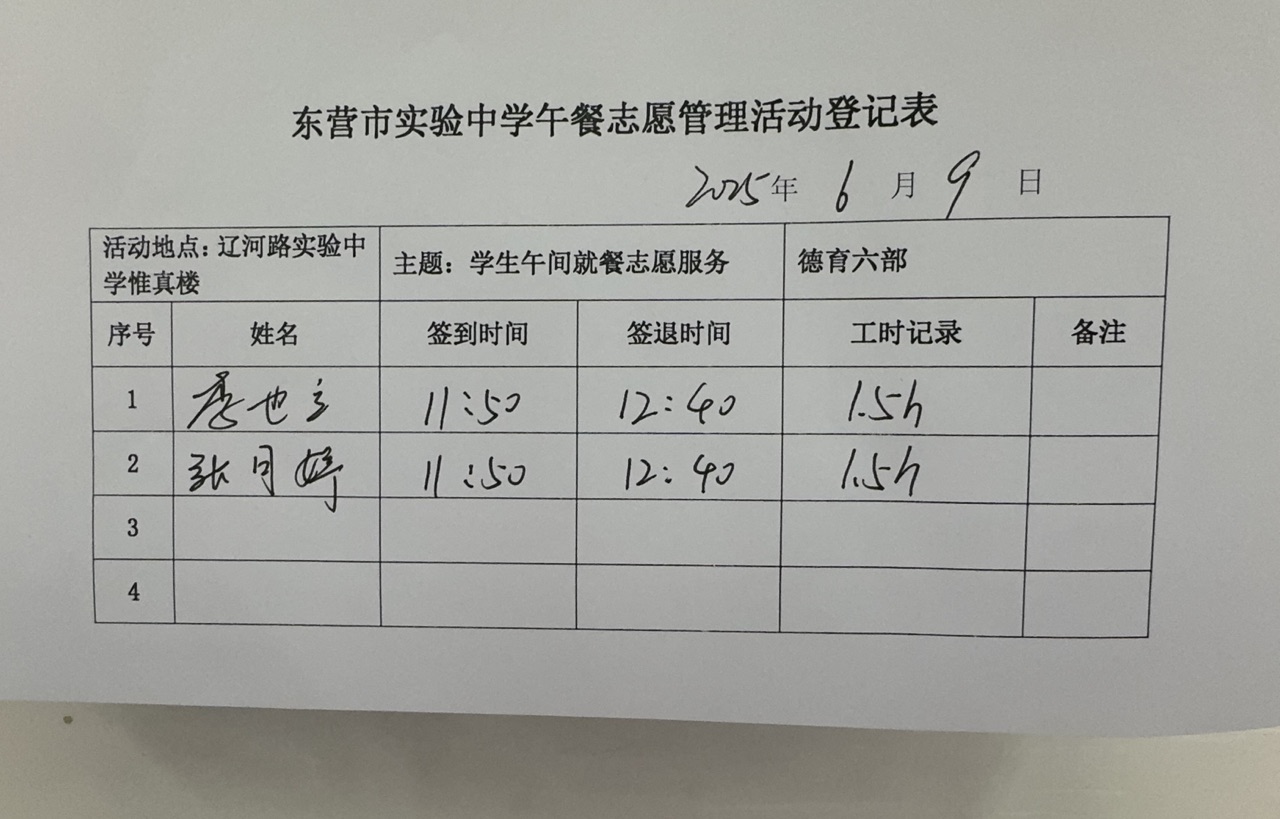 东营市实验中学午餐志愿管理活动登记表
2025年 6 月 9 日
活动地点：辽河路实验中
学惟真楼
主题：学生午间就餐志愿服务
德育六部
序号 姓名 签到时间 签退时间 工时记录 备注
1 11:50 12:40 1.5h
2 张月婷 11:50 12:40 1.5h
3
4